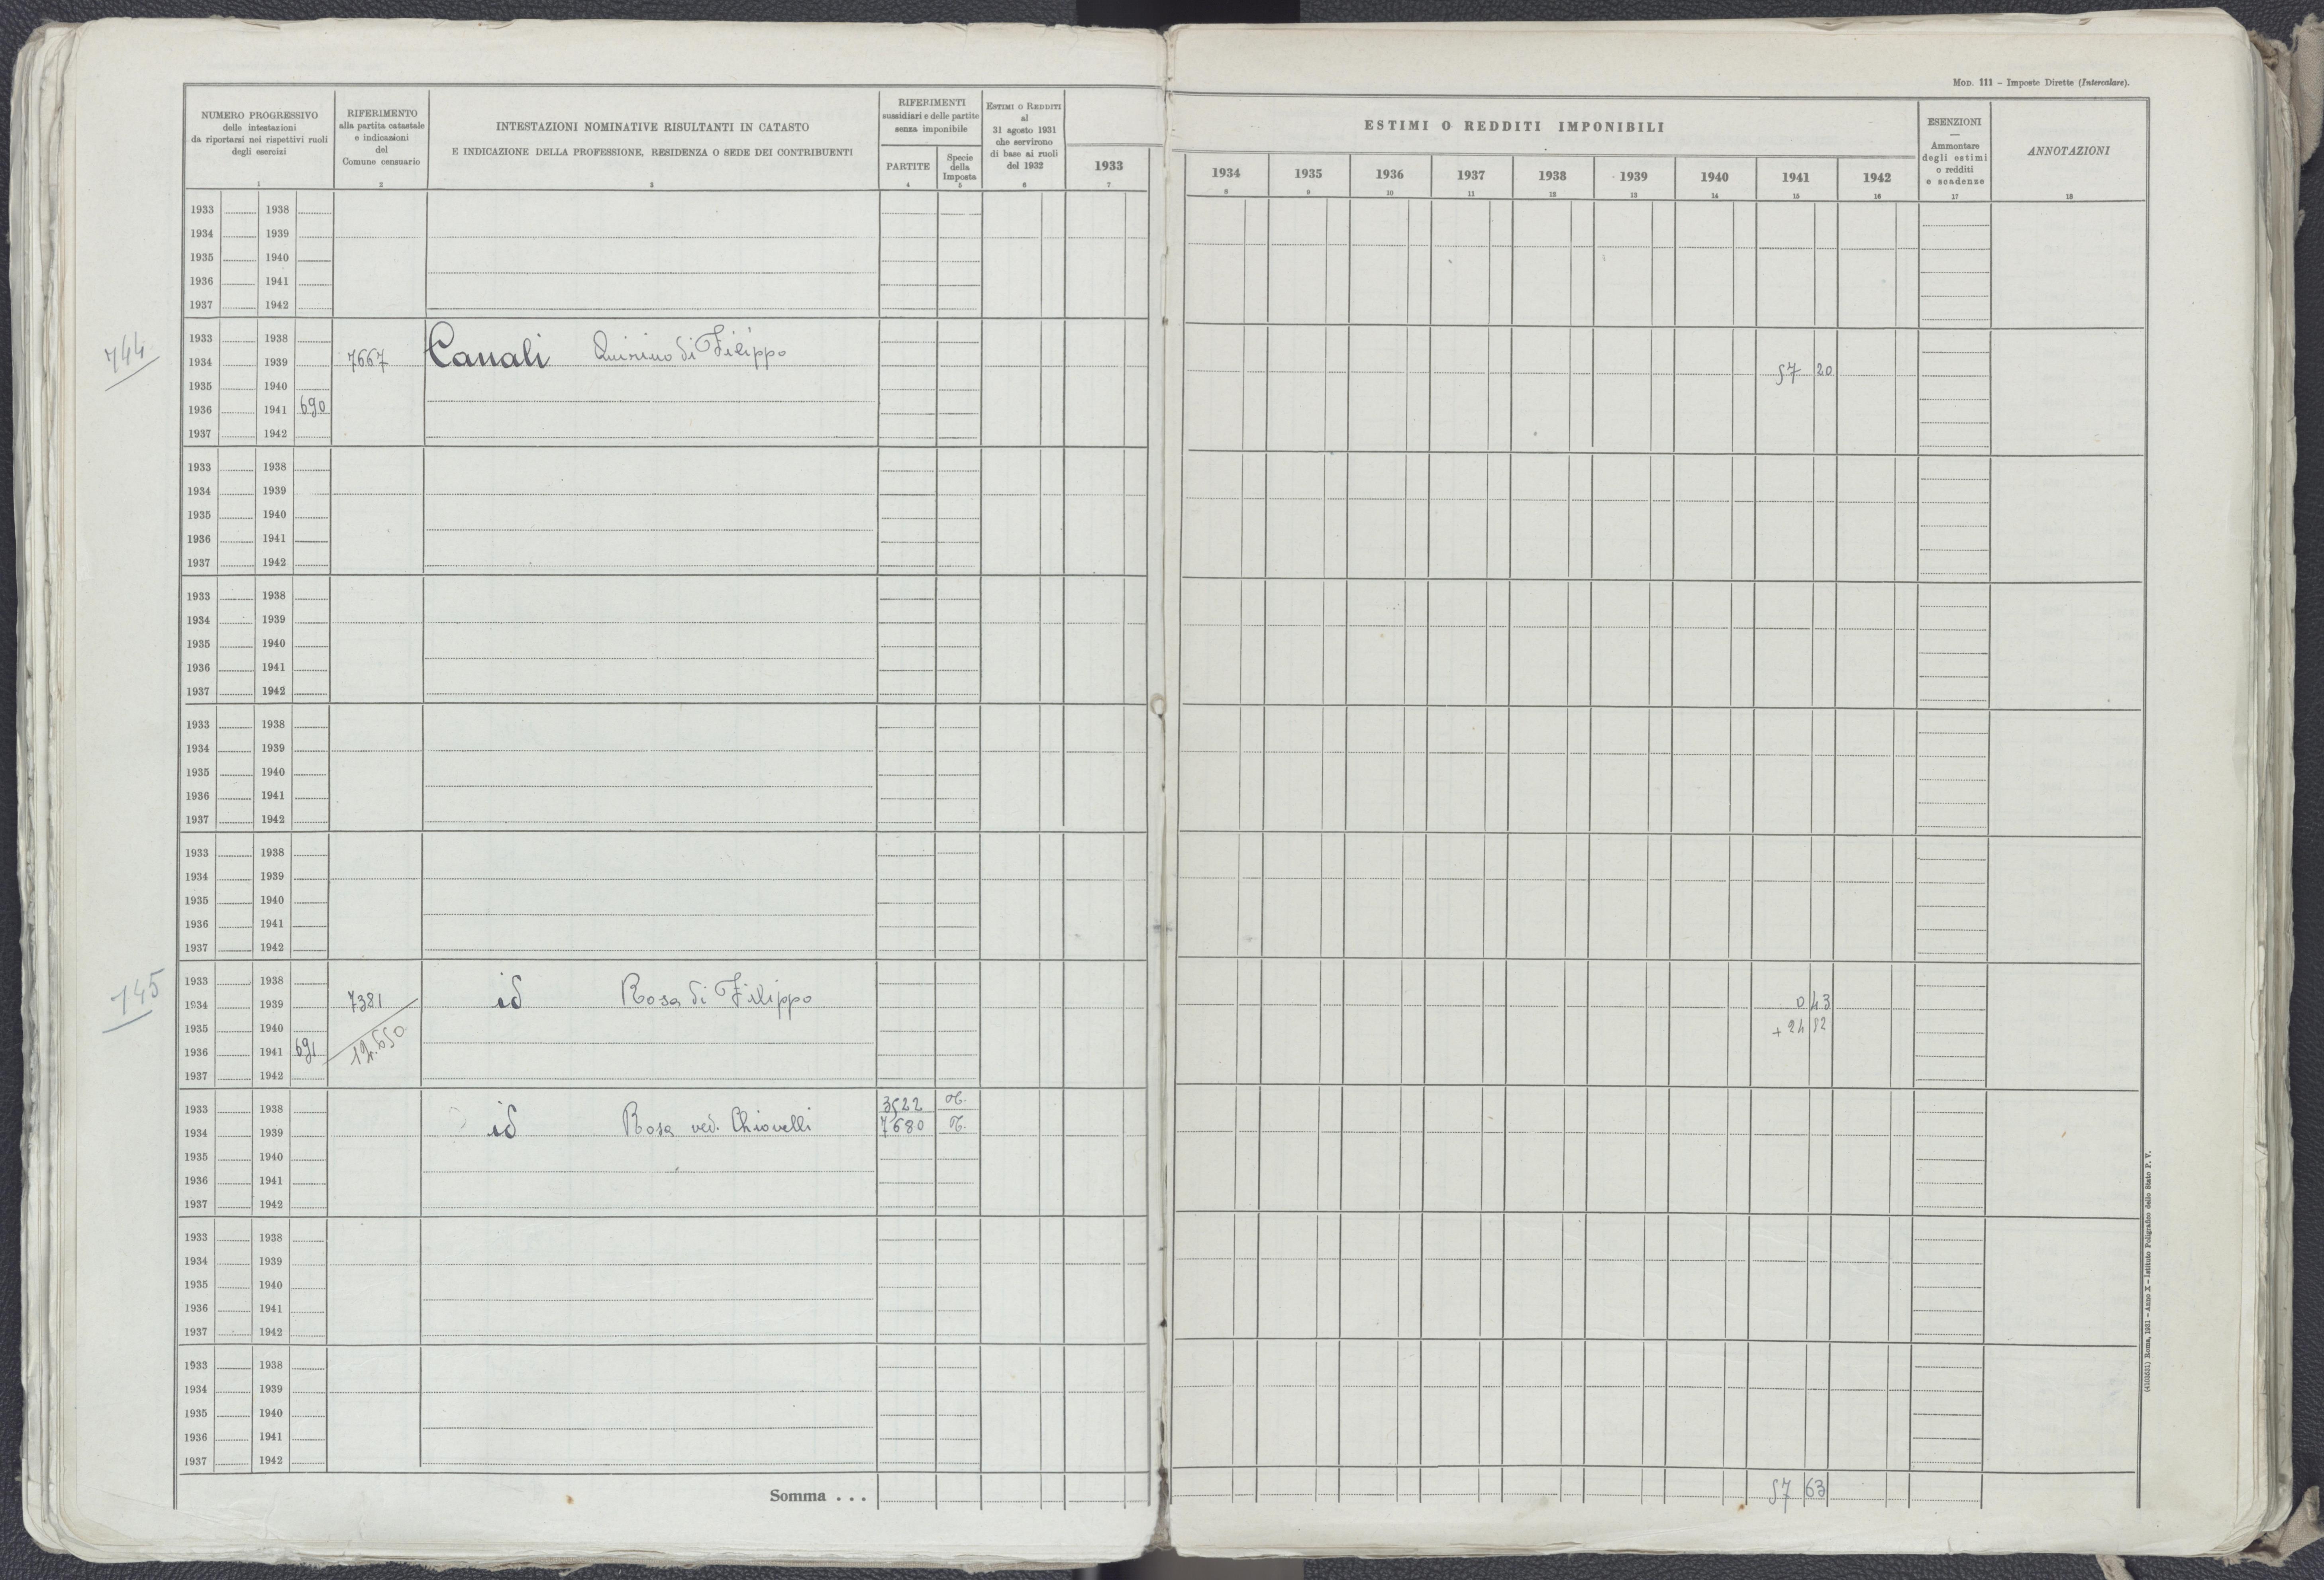 MOD. 111 – Imposte Dirette (Intercalare).
NUMERO PROGRESSIVO
delle intestazioni
da riportarsi nei rispettivi ruoli
degli esercizi
1
RIFERIMENTO
alla partita catastale
e indicazioni
del
Comune censuario
2
INTESTAZIONI NOMINATIVE RISULTANTI IN CATASTO
E INDICAZIONE DELLA PROFESSIONE, RESIDENZA O SEDE DEI CONTRIBUENTI
3
RIFERIMENTI
sussidiari e delle partite
senza imponibile
PARTITE
4
Specie
della
Imposta
5
ESTIMI O REDDITI
al
31 agosto 1931
che servirono
di base ai ruoli
del 1932
6
ESTIMI O REDDITI IMPONIBILI
1933 1934 1935 1936 1937 1938 1939 1940 1941 1942
7 8 9 10 11 12 13 14 15 16
ESENZIONI
—
Ammontare
degli estimi
o redditi
e scadenze
17
ANNOTAZIONI
18
1933 1938
1934 1939
1935 1940
1936 1941
1937 1942
744
1933 1938
1934 1939 7667 Canali Quirino di Filippo 57 20
1935 1940
1936 1941 690
1937 1942
1933 1938
1934 1939
1935 1940
1936 1941
1937 1942
1933 1938
1934 1939
1935 1940
1936 1941
1937 1942
1933 1938
1934 1939
1935 1940
1936 1941
1937 1942
1933 1938
1934 1939
1935 1940
1936 1941
1937 1942
745
1933 1938
1934 1939 7381 id Rosa di Filippo 0 43
1935 1940 + 24 52
1936 1941 691
1937 1942
1933 1938 3522
1934 1939 id Rosa ved. Chiovelli 7680
1935 1940
1936 1941
1937 1942
1933 1938
1934 1939
1935 1940
1936 1941
1937 1942
1933 1938
1934 1939
1935 1940
1936 1941
1937 1942
Somma . . . 57 63
Roma, 1931 – Anno X – Istituto Poligrafico dello Stato P. V.